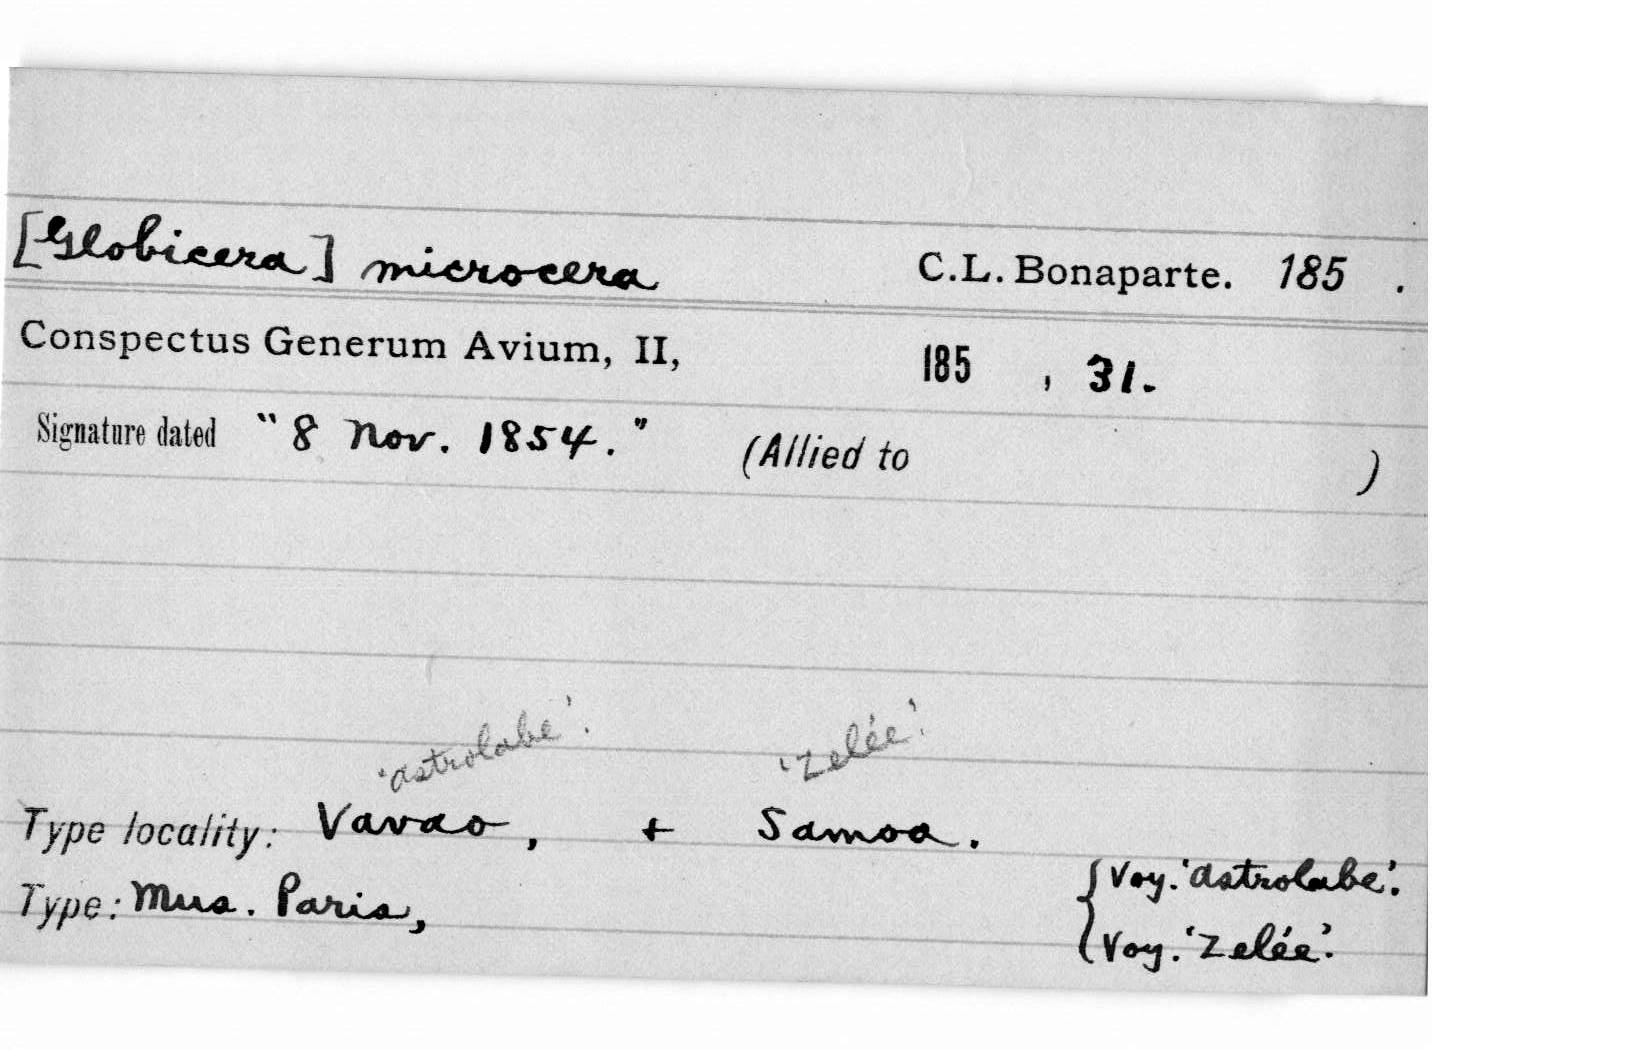 [Globicera] microcera C.L. Bonaparte. 185 .
Conspectus Generum Avium, II, 185 , 31.
Signature dated "8 Nov. 1854." (Allied to )
'Astrolabe'. 'Zelée'.
Type locality: Vavao, + Samoa.
{Voy. 'Astrolabe'.
Type: Mus. Paris,
Voy. 'Zelée'.